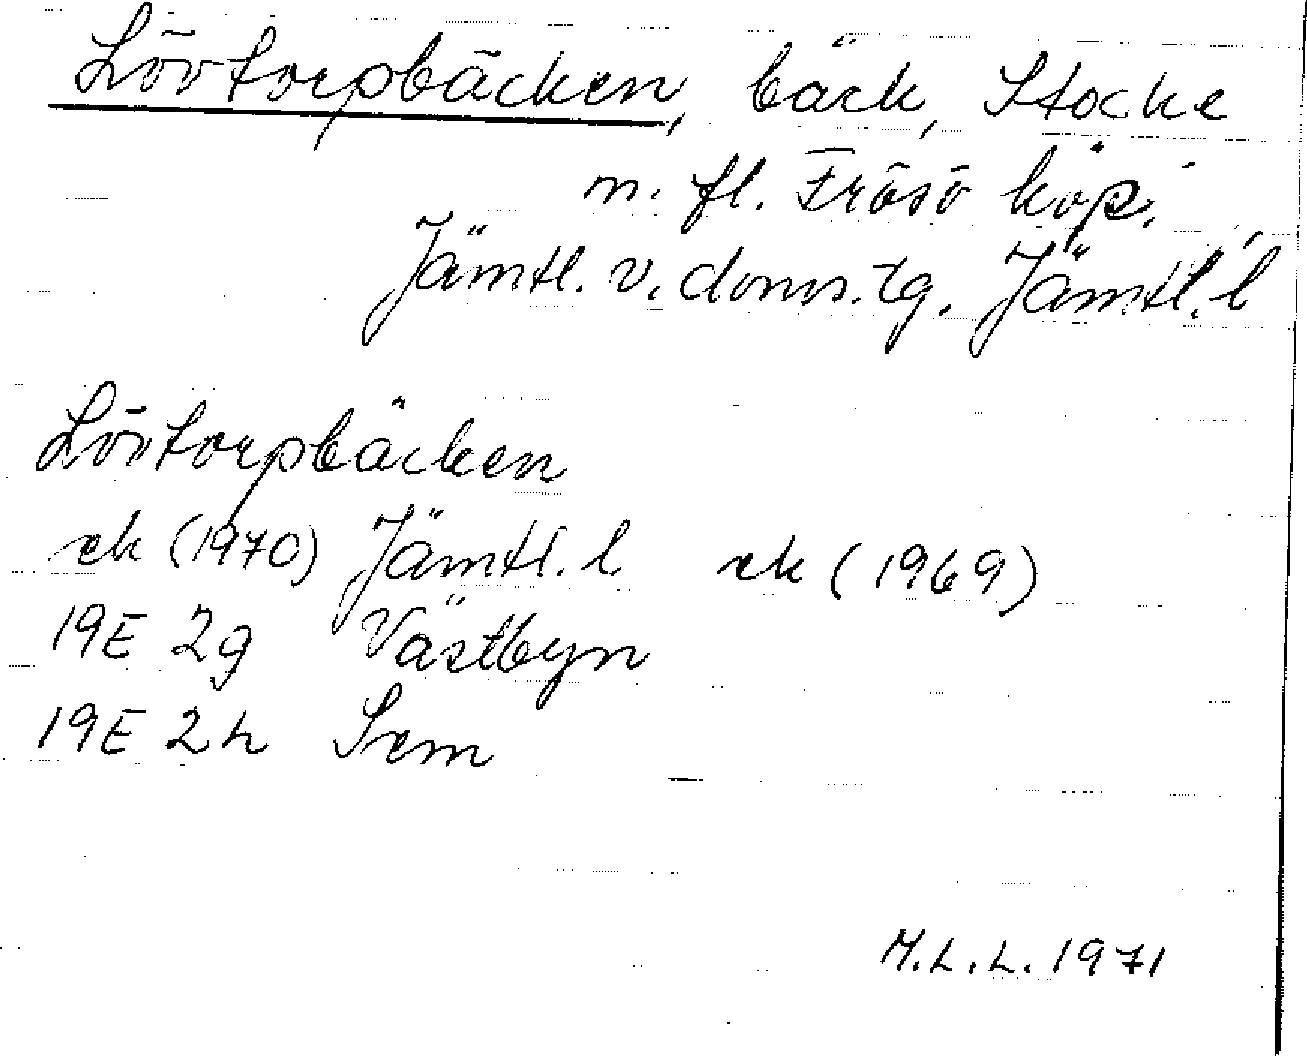 Lövtorpbäcken, bäck, Stocke
m. fl. Frösö köp.
Jämtl. v. doms.tg. Jämtl. l
Lövtorpbäcken
ek (1970) Jämtl. l. ek (1969)
19E 2g Västbyn
19E 2h Sem
M.L.L. 1971